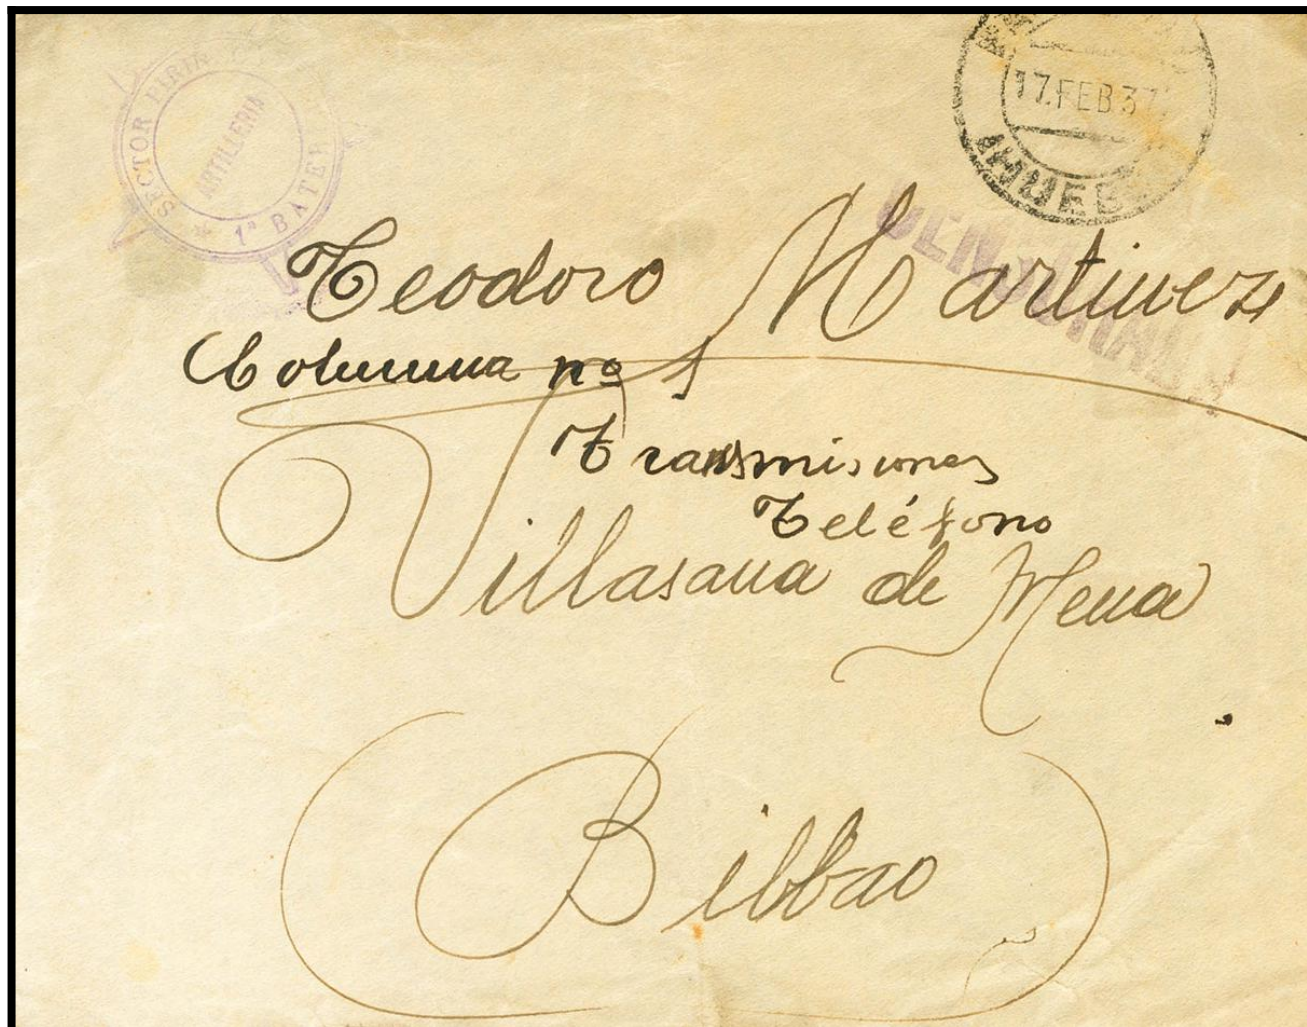 SECTOR
ARTILLERIA
1ª
17.FEB37
Teodoro Martinez
Columna nº 1
Transmisiones
Teléfono
Villasana de Mena
Bilbao